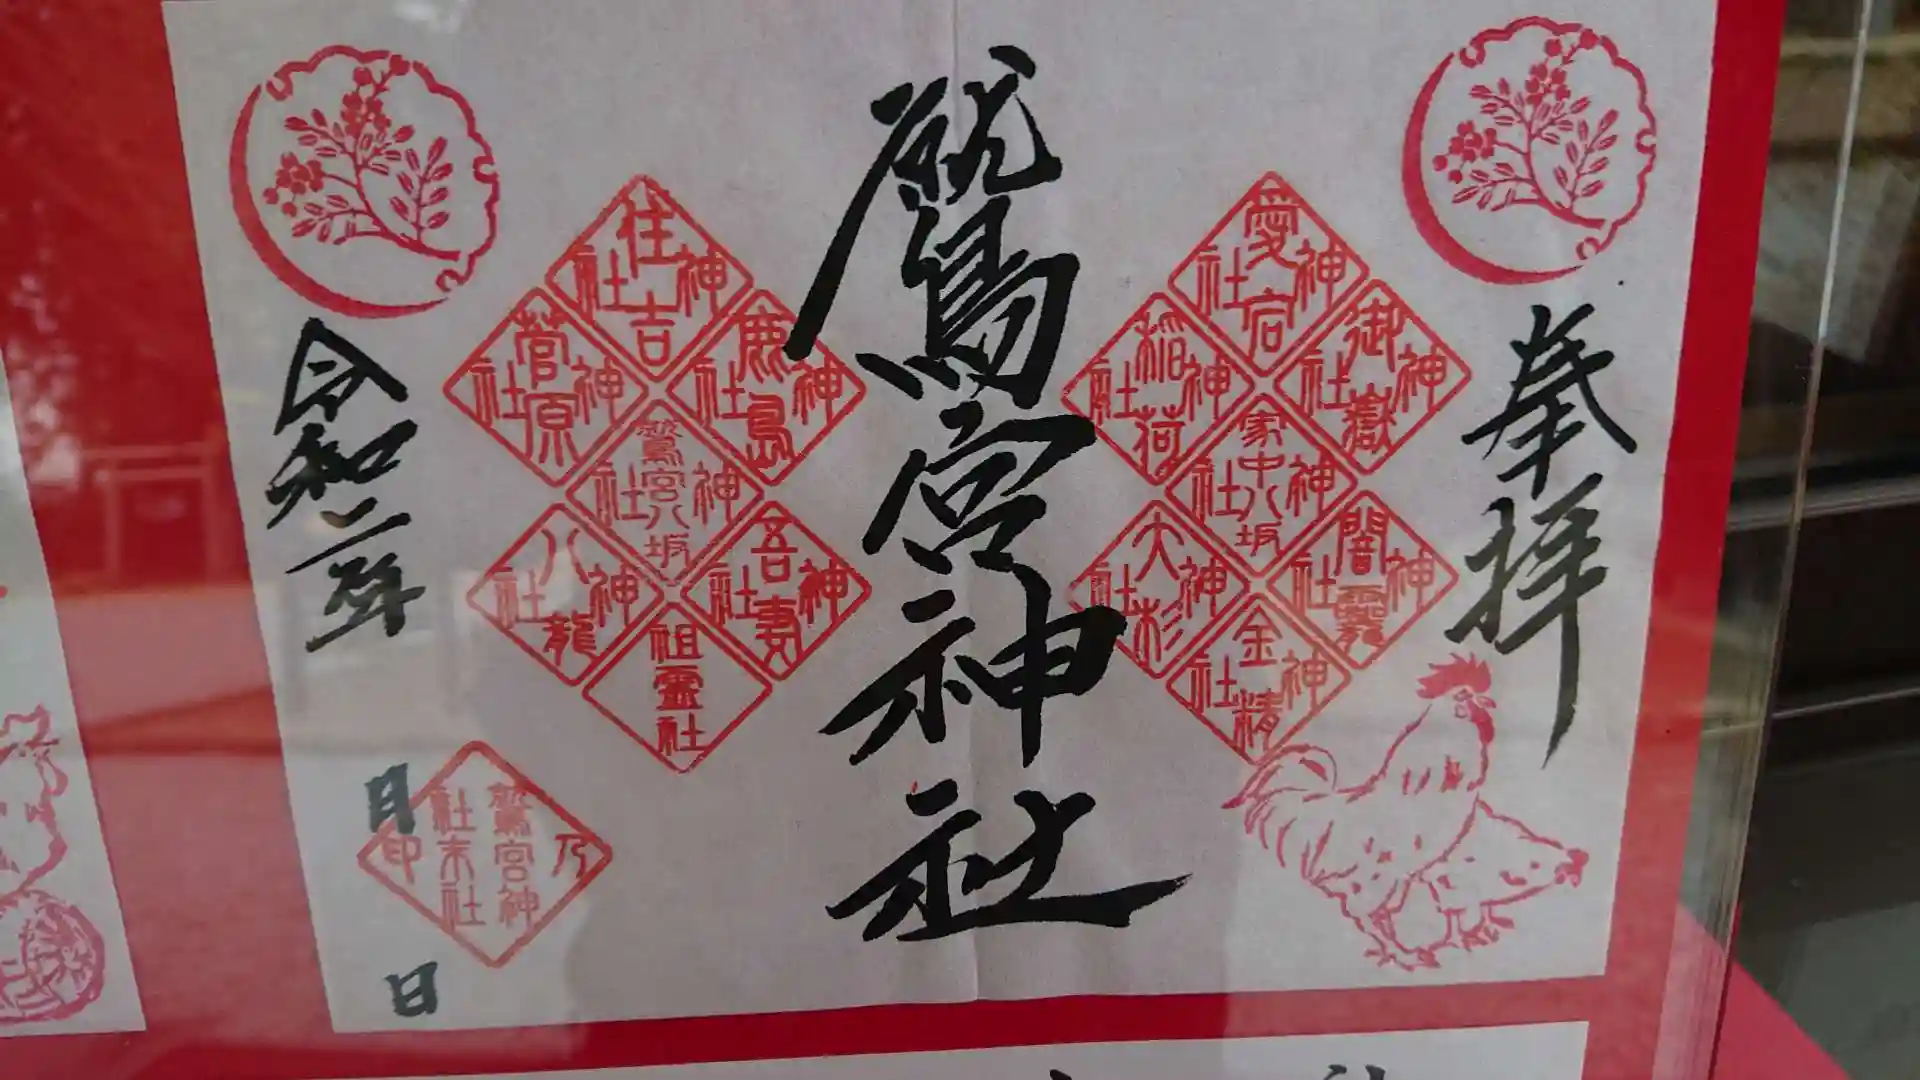 奉拝
愛宕神社
御嶽神社
稲荷神社
家中八坂神社
闇龗神社
大杉神社
金精神社
鷲宮神社
住吉神社
鹿島神社
菅原神社
鷲宮八坂神社
吾妻神社
八龍神社
祖霊社
令和二年
月
日
鷲宮神社末社乃印